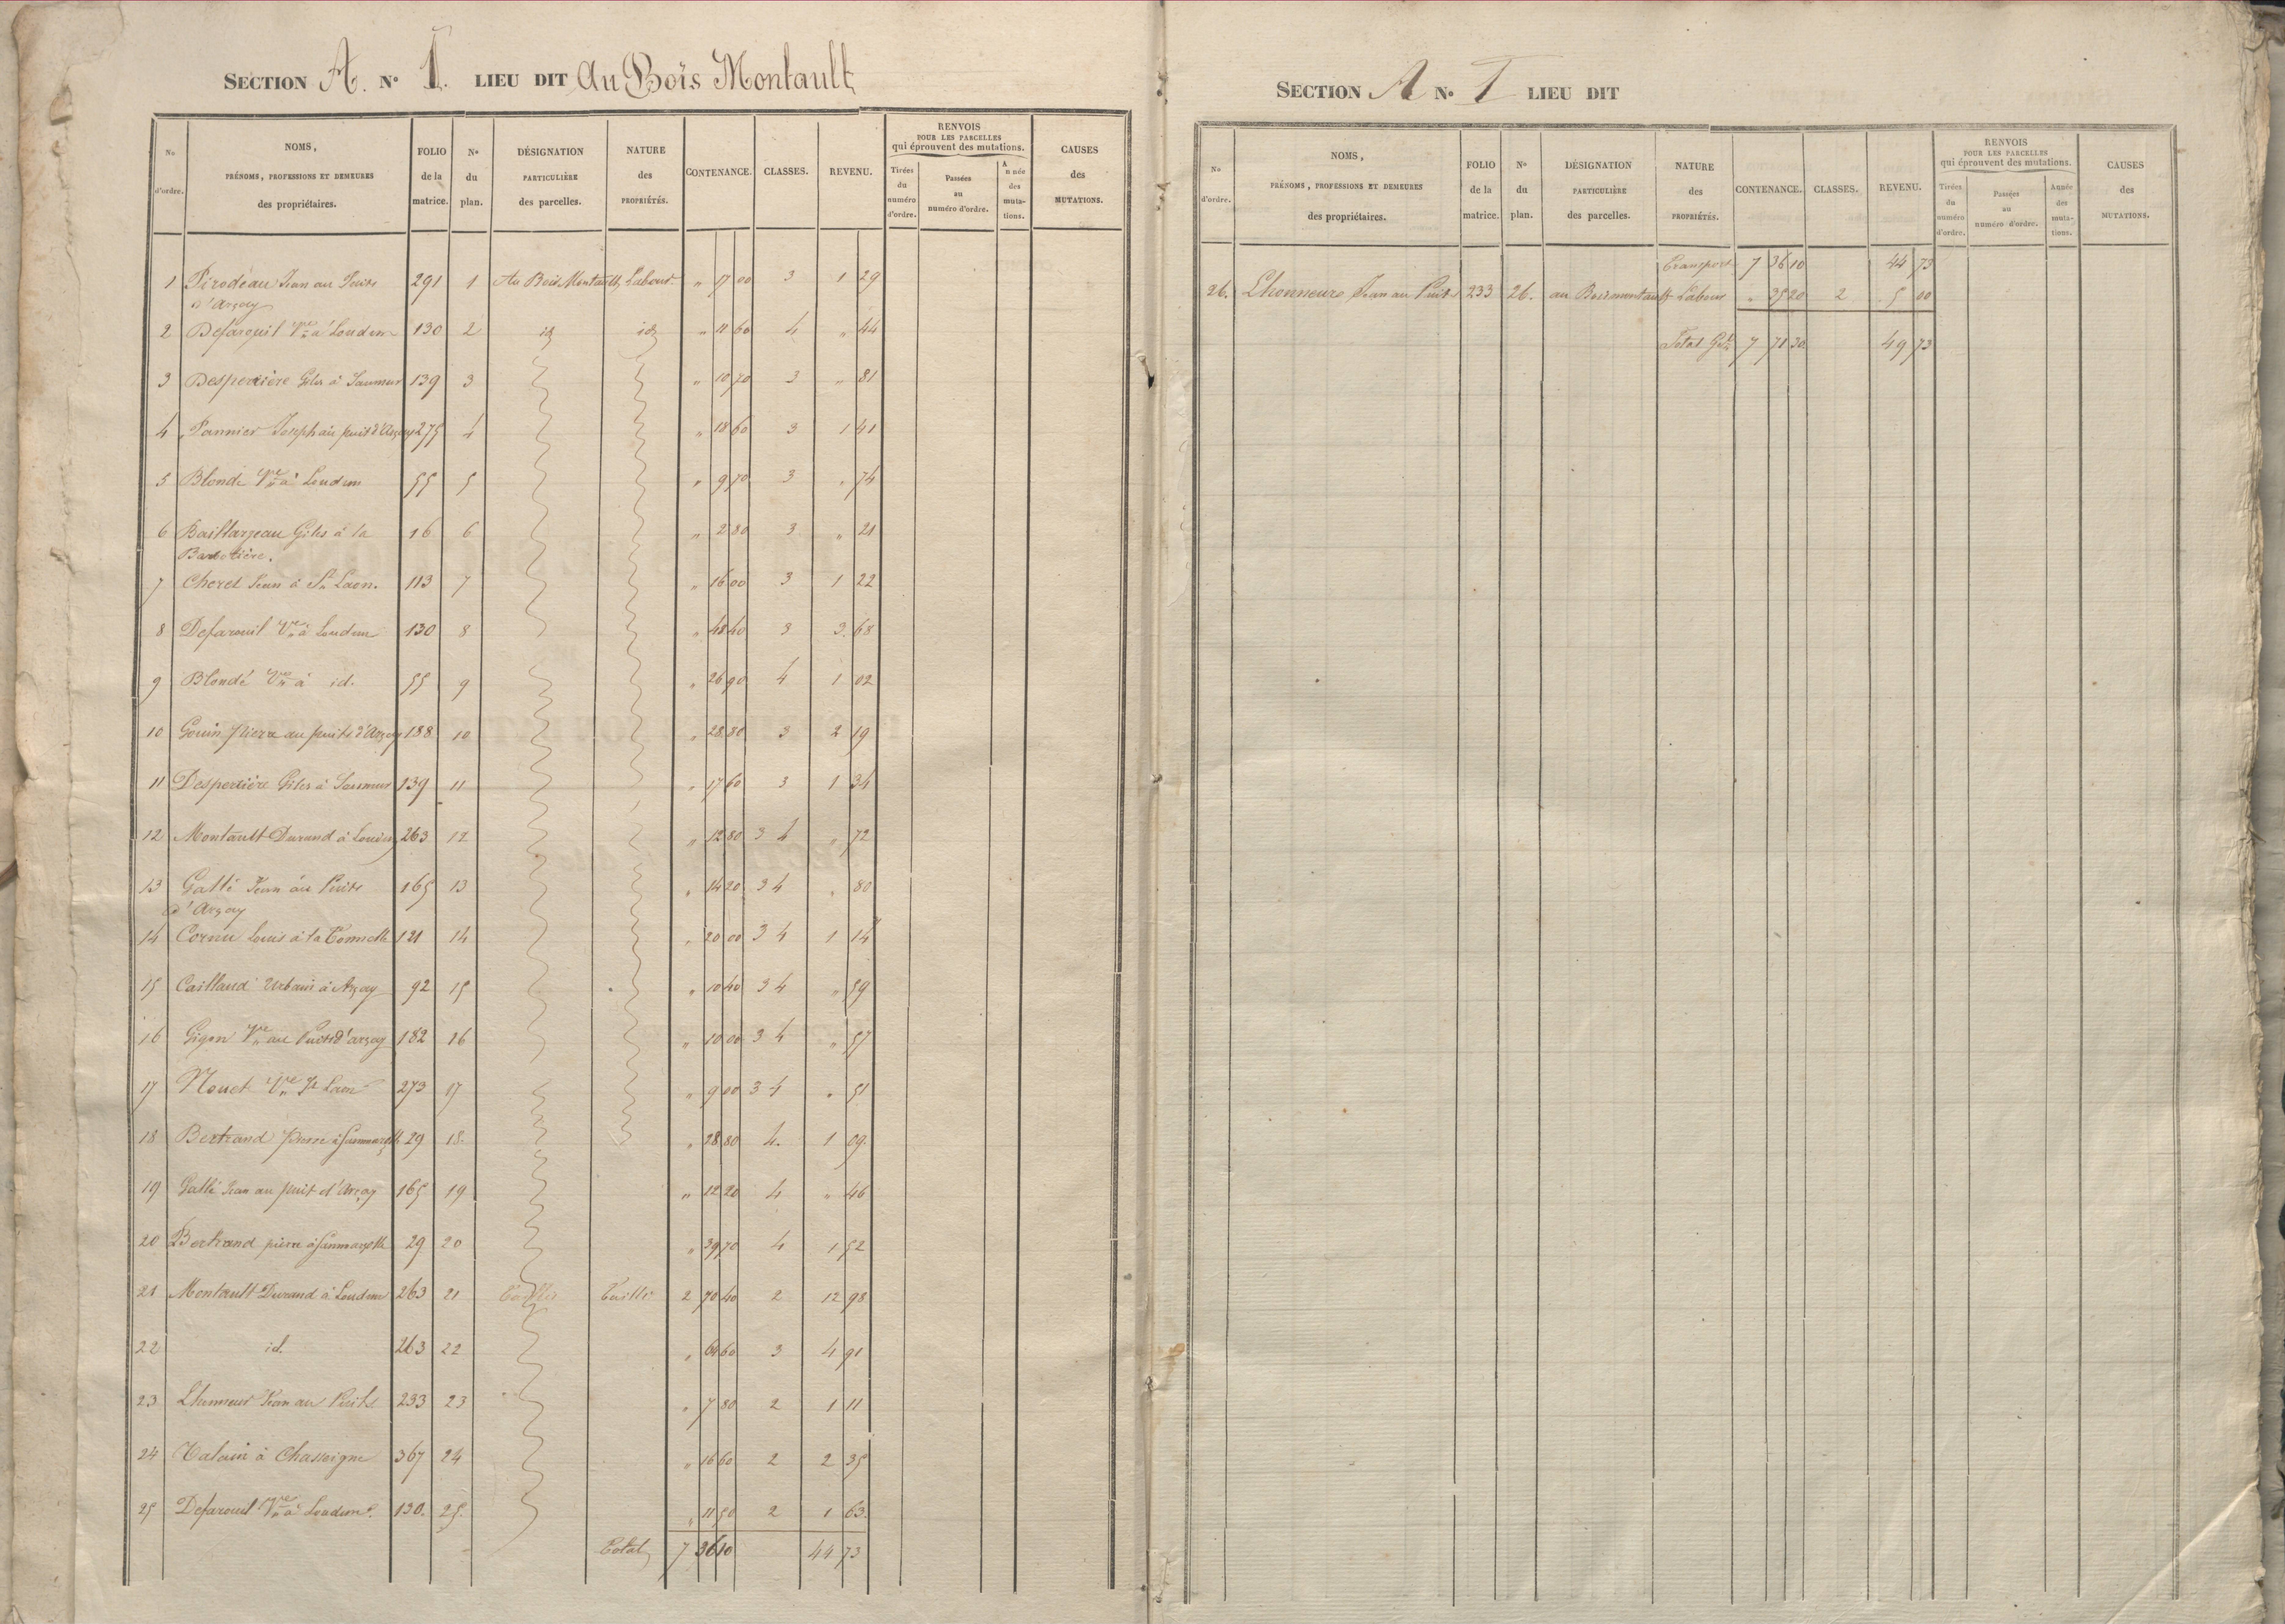 SECTION A. N° I. LIEU DIT Au Bois Montault
No d'ordre. NOMS, PRÉNOMS, PROFESSIONS ET DEMEURES des propriétaires. FOLIO de la matrice. No du plan. DÉSIGNATION PARTICULIÈRE des parcelles. NATURE des PROPRIÉTÉS. CONTENANCE. CLASSES. REVENU. RENVOIS POUR LES PARCELLES qui éprouvent des mutations. Tirées du numéro d'ordre. Passées au numéro d'ordre. Année des mutations. CAUSES des MUTATIONS.
1 Pirodeau Jean au Puits 291 1 Au Bois Montault Labour " 17 00 3 1 29
d'Arçay
2 Defarouil Vve à Loudun 130 2 id id " 11 60 4 " 44
3 Despertière Giles à Saumur 139 3 " 10 70 3 " 81
4 Pannier Joseph au puit d'Arçay 275 4 " 18 60 3 1 41
5 Blondé Vve à Loudun 55 5 " 9 70 3 " 74
6 Baillargeau Giles à la 16 6 " 2 80 3 " 21
7 Cheret Jean à St Laon. 113 7 " 16 00 3 1 22
8 Defarouil Vve à Loudun 130 8 " 48 40 3 3 68
9 Blondé Vve à id. 55 9 " 26 90 4 1 02
10 Gouin pierre au puits d'Arçay 188 10 " 28 80 3 2 19
11 Despertière Giles à Saumur 139 11 " 17 60 3 1 34
12 Montault Durand à Loudun 263 12 " 12 80 3 4 " 72
13 Gallé Jean au Puits 165 13 " 14 20 3 4 " 80
d'Arçay
14 Cornu Louis à la 121 14 " 20 00 3 4 1 14
15 Caillaud Urbain à Arçay 92 15 " 10 40 3 4 " 59
16 Gigon Vve au Puits d'arçay 182 16 " 10 00 3 4 " 57
17 Nouet Vve St Laon 273 17 " 9 00 3 4 " 51
18 Bertrand pierre à 29 18. " 28 80 4. 1 09.
19 Gallé Jean au puit d'Arçay 165 19 " 12 20 4 " 46
20 Bertrand pierre à 29 20 " 39 70 4 1 52
21 Montault Durand à Loudun 263 21 Taillis 2 70 40 2 12 98
22 id. 263 22 " 64 60 3 4 91
23 Lhonneur Jean au Puits 233 23 " 7 80 2 1 11
24 à Chasseigne 367 24 " 16 60 2 2 35
25 Defarouil Vve à Loudun. 130. 25. " 11 50 2 1 63
Total 7 36 10 44 73
SECTION A N° I LIEU DIT
No d'ordre. NOMS, PRÉNOMS, PROFESSIONS ET DEMEURES des propriétaires. FOLIO de la matrice. No du plan. DÉSIGNATION PARTICULIÈRE des parcelles. NATURE des PROPRIÉTÉS. CONTENANCE. CLASSES. REVENU. RENVOIS POUR LES PARCELLES qui éprouvent des mutations. Tirées du numéro d'ordre. Passées au numéro d'ordre. Année des mutations. CAUSES des MUTATIONS.
Transport 7 36 10 44 73
26. Lhonneure Jean au Puits 233 26. au Boismontault Labour " 35 20 2 5 00
Total Gal 7 71 30 49 73